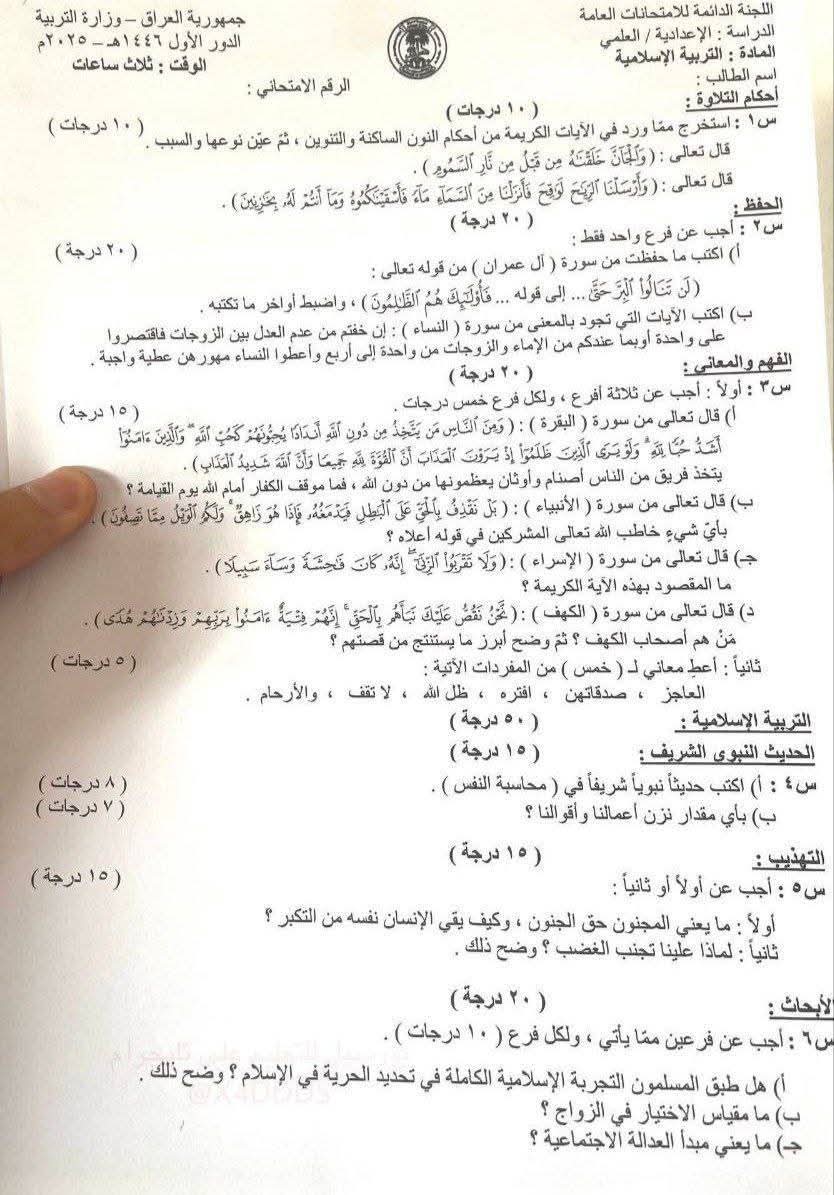 اللجنة الدائمة للامتحانات العامة
الدراسة : الإعدادية / العلمي
المادة : التربية الإسلامية
اسم الطالب :
جمهورية العراق – وزارة التربية
الدور الأول ١٤٤٦هـ – ٢٠٢٥م
الوقت : ثلاث ساعات
الرقم الامتحاني :
أحكام التلاوة : ( ١٠ درجات )
س١ : استخرج ممّا ورد في الآيات الكريمة من أحكام النون الساكنة والتنوين ، ثمّ عيّن نوعها والسبب . ( ١٠ درجات )
قال تعالى : ( وَالْجَانَّ خَلَقْنَاهُ مِن قَبْلُ مِن نَّارِ السَّمُومِ ) .
قال تعالى : ( وَأَرْسَلْنَا الرِّيَاحَ لَوَاقِحَ فَأَنزَلْنَا مِنَ السَّمَاءِ مَاءً فَأَسْقَيْنَاكُمُوهُ وَمَا أَنتُمْ لَهُ بِخَازِنِينَ ) .
الحفظ : ( ٢٠ درجة )
س٢ : أجب عن فرع واحد فقط : ( ٢٠ درجة )
أ) اكتب ما حفظت من سورة ( آل عمران ) من قوله تعالى :
( لَن تَنَالُوا الْبِرَّ حَتَّى ... إلى قوله ... فَأُولَٰئِكَ هُمُ الظَّالِمُونَ ) ، واضبط أواخر ما تكتبه .
ب) اكتب الآيات التي تجود بالمعنى من سورة ( النساء ) : إن خفتم من عدم العدل بين الزوجات فاقتصروا
على واحدة أوبما عندكم من الإماء والزوجات من واحدة إلى أربع وأعطوا النساء مهورهن عطية واجبة .
الفهم والمعاني : ( ٢٠ درجة )
س٣ : أولاً : أجب عن ثلاثة أفرع ، ولكل فرع خمس درجات . ( ١٥ درجة )
أ) قال تعالى من سورة ( البقرة ) : ( وَمِنَ النَّاسِ مَن يَتَّخِذُ مِن دُونِ اللَّهِ أَندَادًا يُحِبُّونَهُمْ كَحُبِّ اللَّهِ ۖ وَالَّذِينَ ءَامَنُوا
أَشَدُّ حُبًّا لِلَّهِ ۗ وَلَوْ يَرَى الَّذِينَ ظَلَمُوا إِذْ يَرَوْنَ الْعَذَابَ أَنَّ الْقُوَّةَ لِلَّهِ جَمِيعًا وَأَنَّ اللَّهَ شَدِيدُ الْعَذَابِ ) .
يتخذ فريق من الناس أصنام وأوثان يعظمونها من دون الله ، فما موقف الكفار أمام الله يوم القيامة ؟
ب) قال تعالى من سورة ( الأنبياء ) : ( بَلْ نَقْذِفُ بِالْحَقِّ عَلَى الْبَاطِلِ فَيَدْمَغُهُ فَإِذَا هُوَ زَاهِقٌ ۚ وَلَكُمُ الْوَيْلُ مِمَّا تَصِفُونَ ) .
بأيّ شيءٍ خاطب الله تعالى المشركين في قوله أعلاه ؟
جـ) قال تعالى من سورة ( الإسراء ) : ( وَلَا تَقْرَبُوا الزِّنَى ۖ إِنَّهُ كَانَ فَاحِشَةً وَسَاءَ سَبِيلًا ) .
ما المقصود بهذه الآية الكريمة ؟
د) قال تعالى من سورة ( الكهف ) : ( نَّحْنُ نَقُصُّ عَلَيْكَ نَبَأَهُم بِالْحَقِّ ۚ إِنَّهُمْ فِتْيَةٌ ءَامَنُوا بِرَبِّهِمْ وَزِدْنَاهُمْ هُدًى ) .
مَنْ هم أصحاب الكهف ؟ ثمّ وضح أبرز ما يستنتج من قصتهم ؟
ثانياً : أعطِ معاني لـ ( خمس ) من المفردات الآتية : ( ٥ درجات )
العاجز ، صدقاتهن ، افتره ، ظل الله ، لا تقف ، والأرحام .
التربية الإسلامية : ( ٥٠ درجة )
الحديث النبوي الشريف : ( ١٥ درجة )
س٤ : أ) اكتب حديثاً نبوياً شريفاً في ( محاسبة النفس ) . ( ٨ درجات )
ب) بأي مقدار نزن أعمالنا وأقوالنا ؟ ( ٧ درجات )
التهذيب : ( ١٥ درجة )
س٥ : أجب عن أولاً أو ثانياً : ( ١٥ درجة )
أولاً : ما يعني المجنون حق الجنون ، وكيف يقي الإنسان نفسه من التكبر ؟
ثانياً : لماذا علينا تجنب الغضب ؟ وضح ذلك .
الأبحاث : ( ٢٠ درجة )
س٦ : أجب عن فرعين ممّا يأتي ، ولكل فرع ( ١٠ درجات ) .
أ) هل طبق المسلمون التجربة الإسلامية الكاملة في تحديد الحرية في الإسلام ؟ وضح ذلك .
ب) ما مقياس الاختيار في الزواج ؟
جـ) ما يعني مبدأ العدالة الاجتماعية ؟